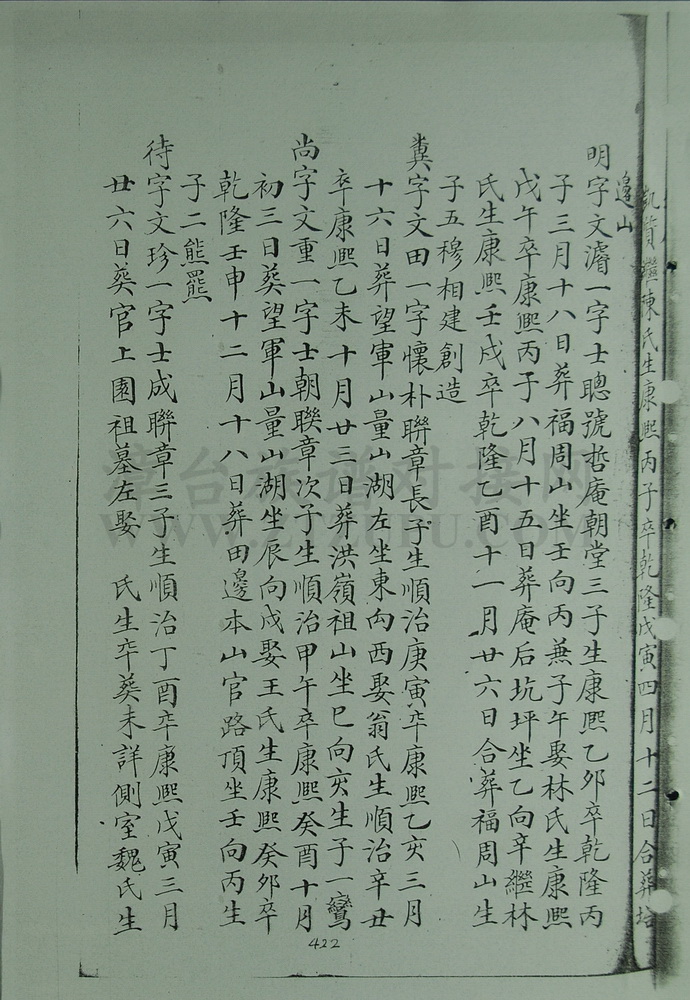 凱質繼陳氏生康熙丙子卒乾隆戊寅四月十二日合葬塔
邊山
明字文濬一字士聰號哲庵朝堂三子生康熙乙卯卒乾隆丙
子三月十八日葬福周山坐壬向丙兼子午娶林氏生康熙
戊午卒康熙丙子八月十五日葬庵后坑坪坐乙向辛繼林
氏生康熙壬戌卒乾隆乙酉十一月廿六日合葬福周山生
子五穆相建創造
糞字文田一字懷朴聯章長子生順治庚寅卒康熙乙亥三月
十六日葬望軍山量山湖左坐東向西娶翁氏生順治辛丑
卒康熙乙未十月廿三日葬洪嶺祖山坐巳向亥生子一鸞
尚字文重一字士朝聯章次子生順治甲午卒康熙癸酉十月
初三日葵望軍山量山湖坐辰向戌娶王氏生康熙癸卯卒
乾隆壬申十二月十八日葬田邊本山官路頂坐壬向丙生
子二熊羆
待字文珍一字士成聯章三子生順治丁酉卒康熙戊寅三月
廿六日葵官上園祖墓左娶 氏生卒葵未詳側室魏氏生
422
WWW.ZTZUPU.COM